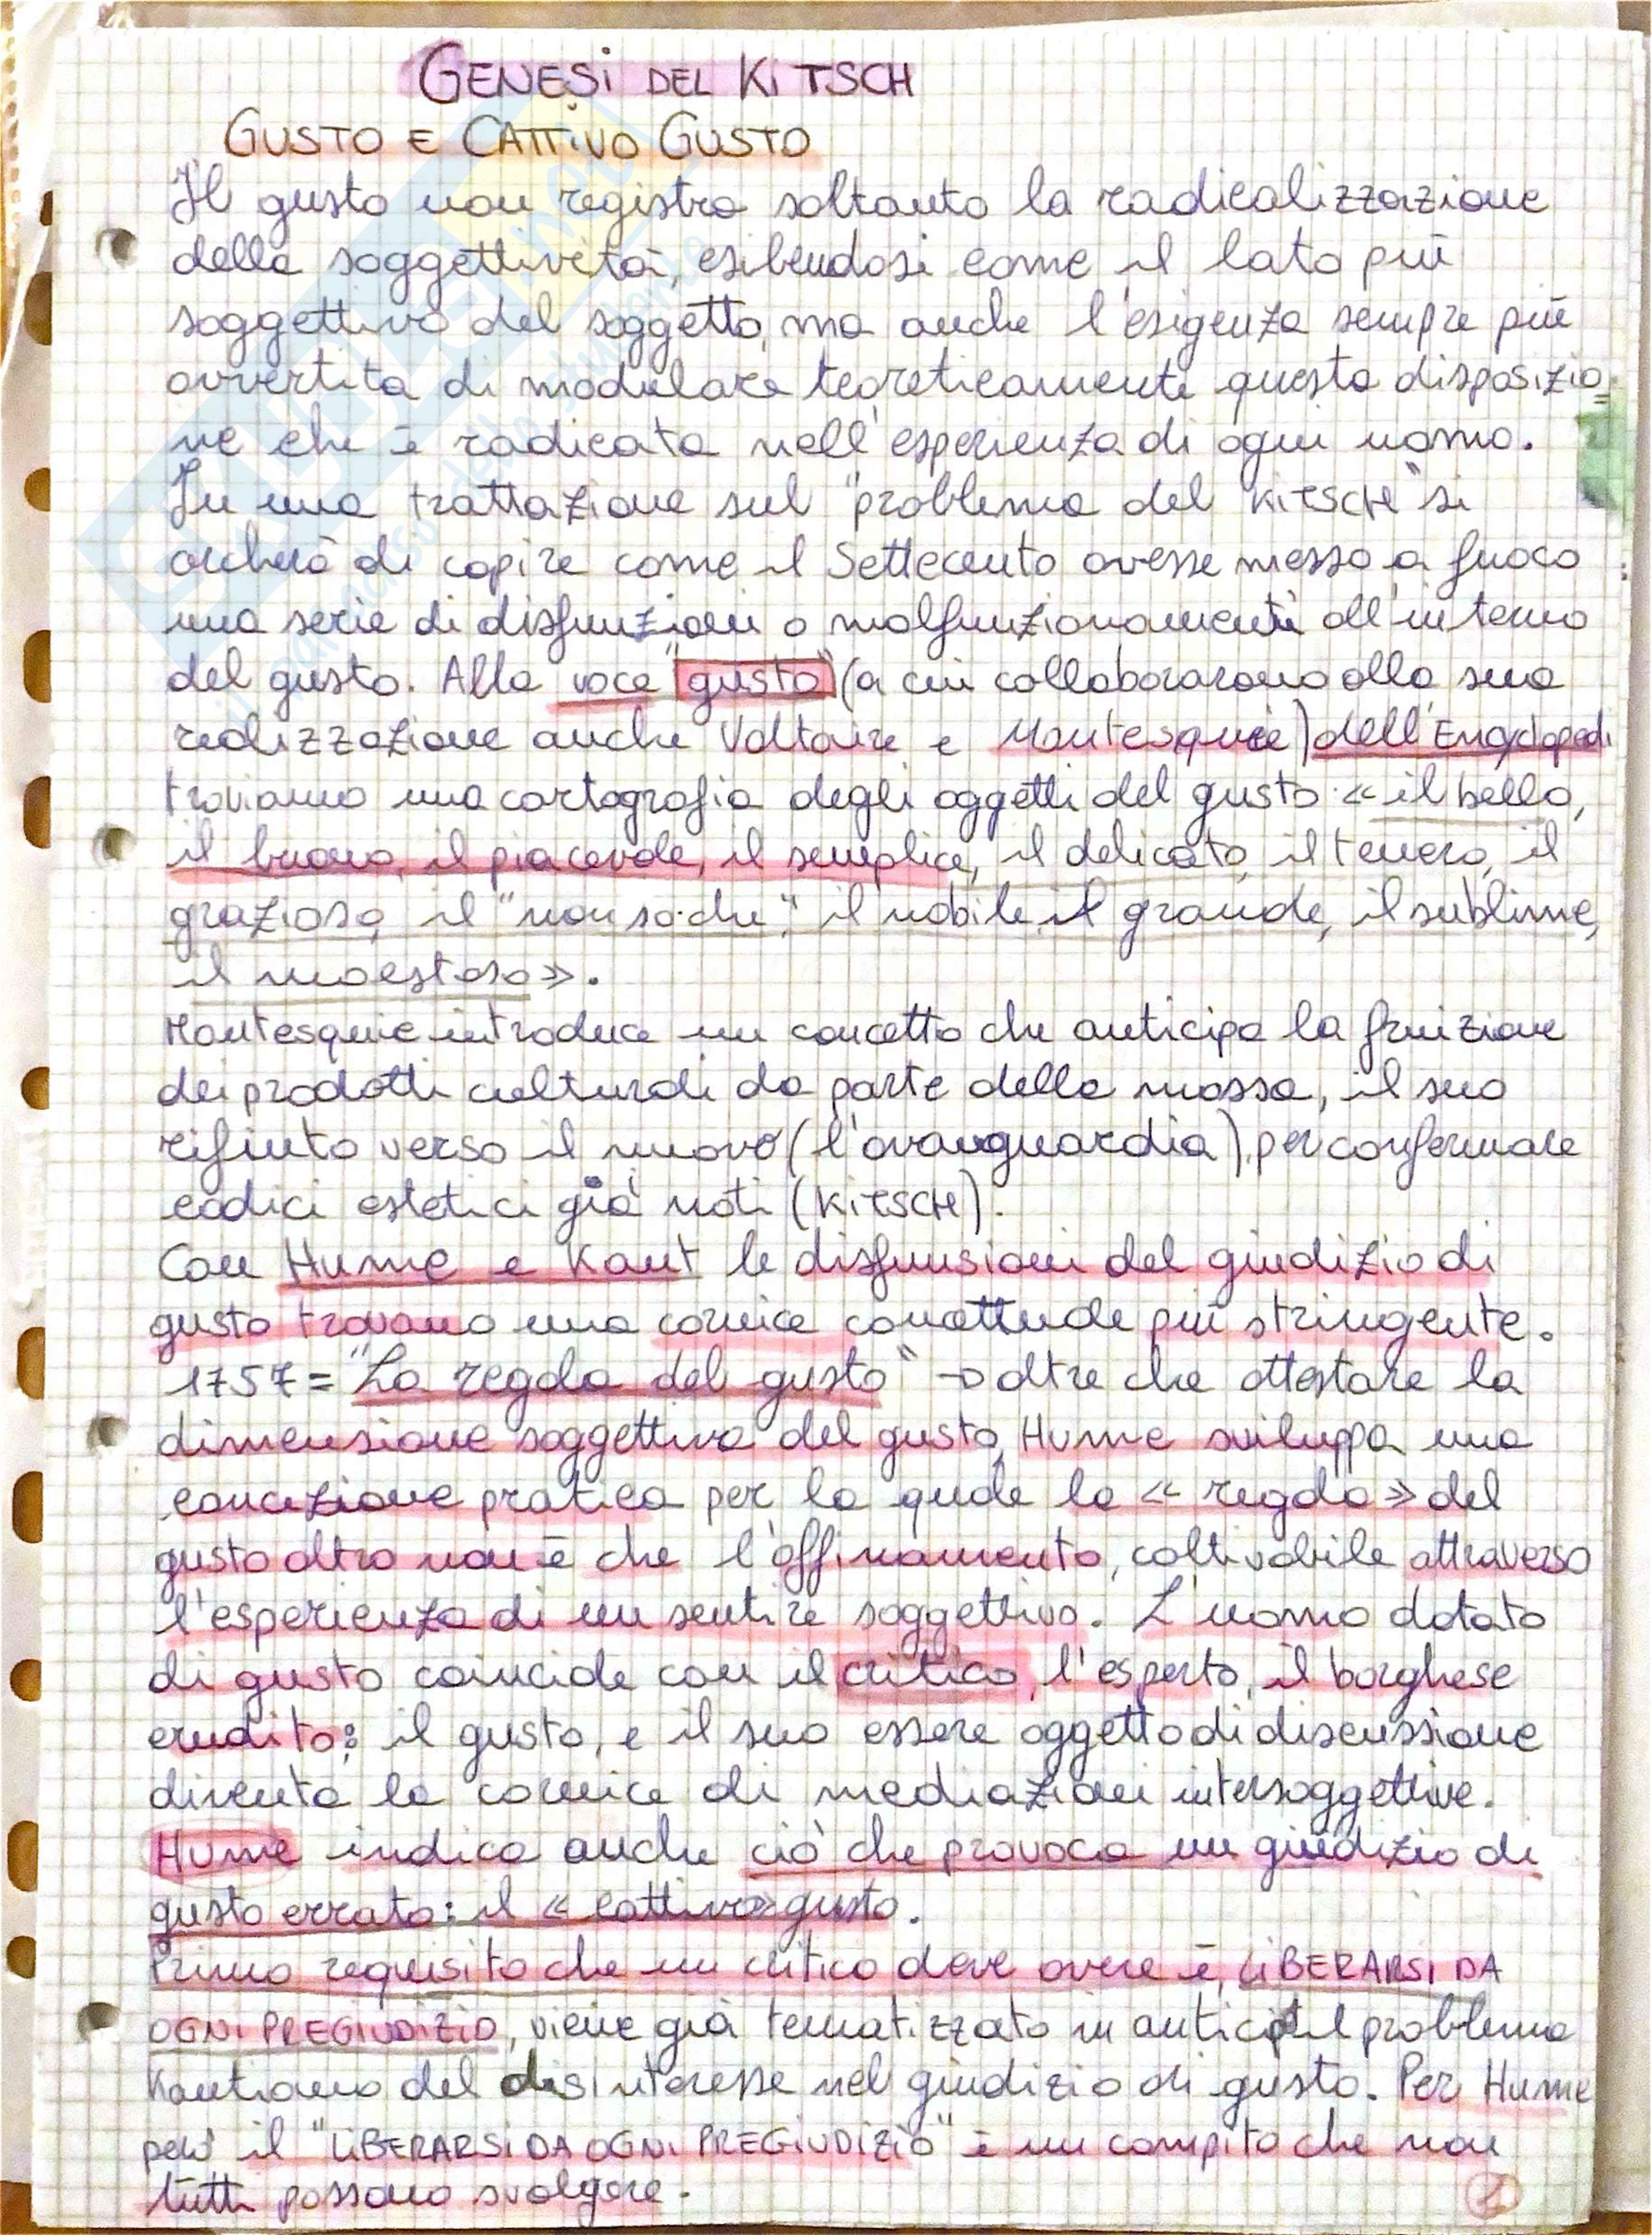 GENESI DEL KITSCH
GUSTO E CATTIVO GUSTO
Il gusto non registra soltanto la radicalizzazione
della soggettività, esibendosi come il lato più
soggettivo del soggetto, ma anche l'esigenza sempre più
avvertita di modulare teoreticamente questa disposizio=
ne che è radicata nell'esperienza di ogni uomo.
In una trattazione sul "problema del KITSCH" si
cercherà di capire come il Settecento avesse messo a fuoco
una serie di disfunzioni o malfunzionamenti all'interno
del gusto. Alla voce "gusto" (a cui collaborarono alla sua
realizzazione anche Voltaire e Montesquie) dell'Encyclopedi
troviamo una cartografia degli oggetti del gusto: «il bello,
il buono, il piacevole, il semplice, il delicato, il tenero, il
grazioso, il "non so-che", il nobile, il grande, il sublime,
il maestoso».
Montesquie introduce un concetto che anticipa la fruizione
dei prodotti culturali da parte della massa, il suo
rifiuto verso il nuovo (l'avanguardia), per confermare
codici estetici già noti (KITSCH).
Con Hume e Kant le disfunsioni del giudizio di
gusto trovano una cornice concettuale più stringente.
1757= "La regola del gusto" → oltre che attestare la
dimensione soggettiva del gusto, Hume sviluppa una
concezione pratica per la quale la «regola» del
gusto altro non è che l'affinamento, coltivabile attraverso
l'esperienza di un sentire soggettivo. L'uomo dotato
di gusto coincide con il critico, l'esperto, il borghese
erudito: il gusto, e il suo essere oggetto di discussione
diventa la cornice di mediazioni intersoggettive.
Hume indica anche ciò che provoca un giudizio di
gusto errato: il «cattivo» gusto.
Primo requisito che un critico deve avere è, LIBERARSI DA
OGNI PREGIUDIZIO, viene già tematizzato in anticipo il problema
Kantiano del disinteresse nel giudizio di gusto. Per Hume
però il "LIBERARSI DA OGNI PREGIUDIZIO" è un compito che non
tutti possono svolgere.
1